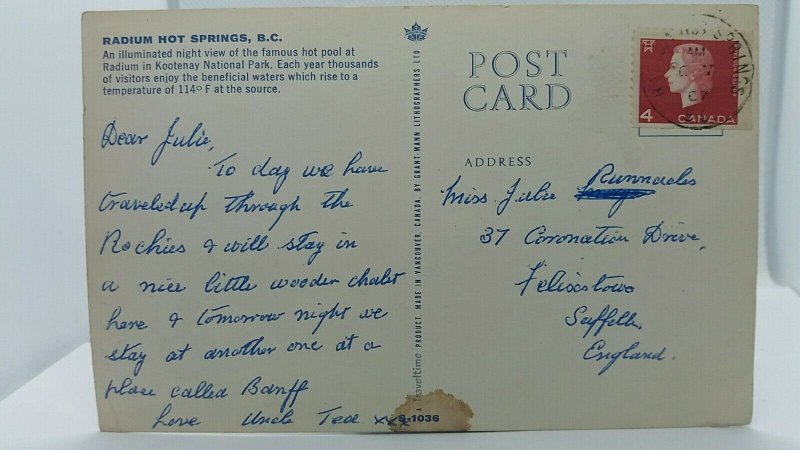 RADIUM HOT SPRINGS, B.C.
An illuminated night view of the famous hot pool at
Radium in Kootenay National Park. Each year thousands
of visitors enjoy the beneficial waters which rise to a
temperature of 114° F at the source.
Dear Julie,
To day we have
traveled up through the
Rockies & will stay in
a nice little wooden chalet
here & tomorrow night we
stay at another one at a
place called Banff
love Uncle Ted xxx
A Traveltime PRODUCT, MADE IN VANCOUVER, CANADA, BY GRANT-MANN LITHOGRAPHERS LTD
S-1036
POST
CARD
ADDRESS
Miss Julie Runnacles
37 Coronation Drive,
Felixstowe
Suffolk,
England.
4 CANADA
HOT SPRINGS
AM